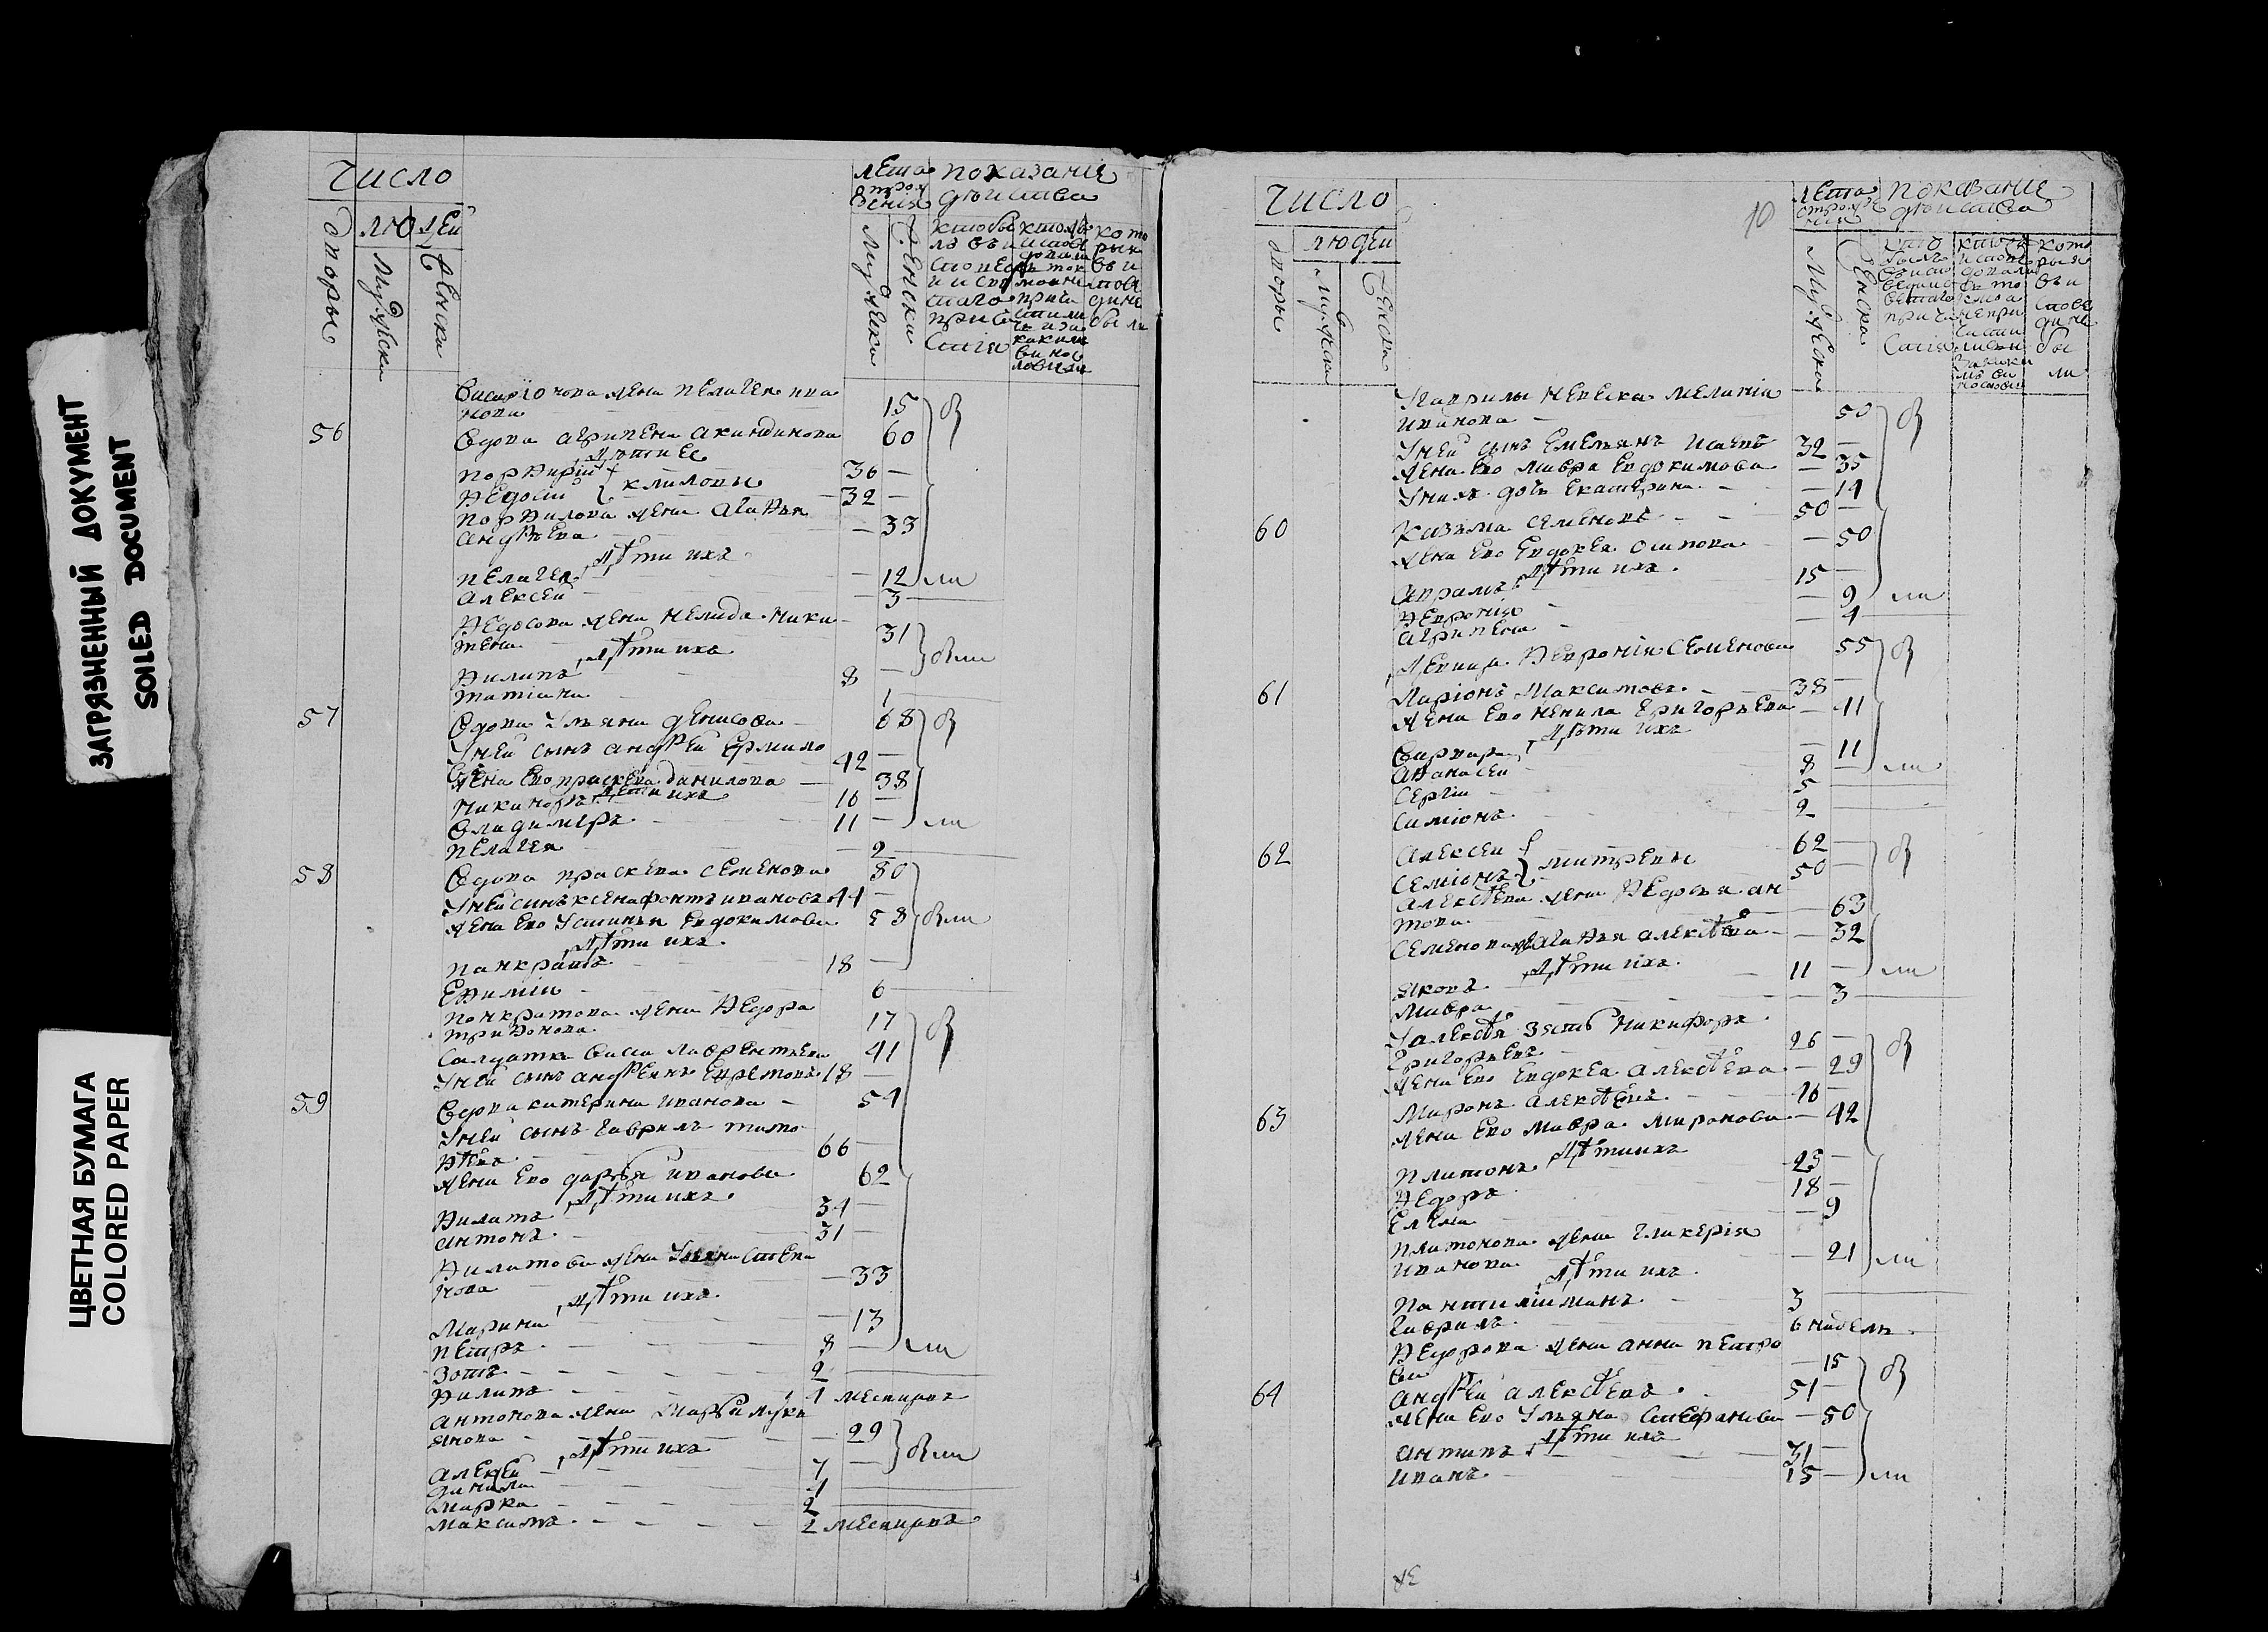 ЗАГРЯЗНЕННЫЙ ДОКУМЕНТ
SOILED DOCUMENT
ЦВЕТНАЯ БУМАГА
COLORED PAPER
число
людей
дворы
мужеска
женска
лета отрож
дения
показание
действа
мужеска
женска
жена пелагея ива
нова 15
56 вдова агрипена акиндинова 60
дѣти ее
порфирий 36
федосий климовы 32
порфилова жена агафья
андрѣева 33
дѣти ихъ
пелагея 12 ли
алексей 3
федосова жена ненида ники
тена 31
дѣти ихъ
филипъ 8
татиана 1
57 вдова ульяна денисова 68
унеи сынъ андрей ермило
въ 42
жена ево праскева данилова 38
дети ихъ
никиноръ 16
владимеръ 11 ли
пелагея 2
58 вдова праскева семенова 80
унеи синъ ксенафонтъ ивановъ 44
жена ево устинья евдокимова 58
дѣти ихъ
панкратъ 18
ефимии 6
понкратова жена федора
трифонова 17
салдатка васа лаврентьева 41
унеи сынъ андреинъ ефремовъ 18
59 вдова катерина иванова 54
унеи сынъ гаврилъ тимо
фѣевъ 66
жена ево дарья иванова 62
дѣти ихъ
филатъ 34
антонъ 31
филатова жена ульяна степа
нова 33
дѣти ихъ
марина 13
петръ 8 ли
зотъ 2
филипъ 4 месицовъ
антонова жена марья лукь
янова 29
дѣти ихъ
алексей 7
данила 4
марка 2
максимъ 2 месицовъ
10
число
людей
дворы
мужеска
женска
лета
отрожде
ния
показание
действа
мужеска
женска
угаврилы невеска меланиа
иванова 50
унеи сынъ емельянъ исаевъ 32
жена ево мавра евдокимова 35
унихъ дочь екатерина 14
60 казьма семеновъ 50
жена ево евдокея осипова 50
дѣти ихъ
аврамъ 15
феврония 9 ли
агрипена 4
девица феврония семенова 55
61 ларионъ максимовъ 38
жена ево ненила григорьева 41
дѣти ихъ
варвара 11
афанасеи 8 ли
сергии 5
симионъ 2
62 алексеи 62
семионъ митревы 50
алексѣева жена федосья ан
това 63
семенова жена агафья алексѣева 32
дѣти ихъ
яковъ 11 ли
мавра 3
уалексѣя зять никифоръ
григорьевъ 26
жена ево евдокея алексѣева 29
63 миронъ алексѣевъ 46
жена ево мавра миронова 42
дѣти ихъ
платонъ 23
федоръ 18
елена 9
платонова жена гликерия
иванова 21 ли
дѣти ихъ
пантилиимонъ 3
гаврилъ 6 нидель
федорова жена анна петро
ва 15
64 андрей алексѣевъ 51
жена ево ульяна стефанова 50
дѣти ихъ
антипъ 31
иванъ 15 ли